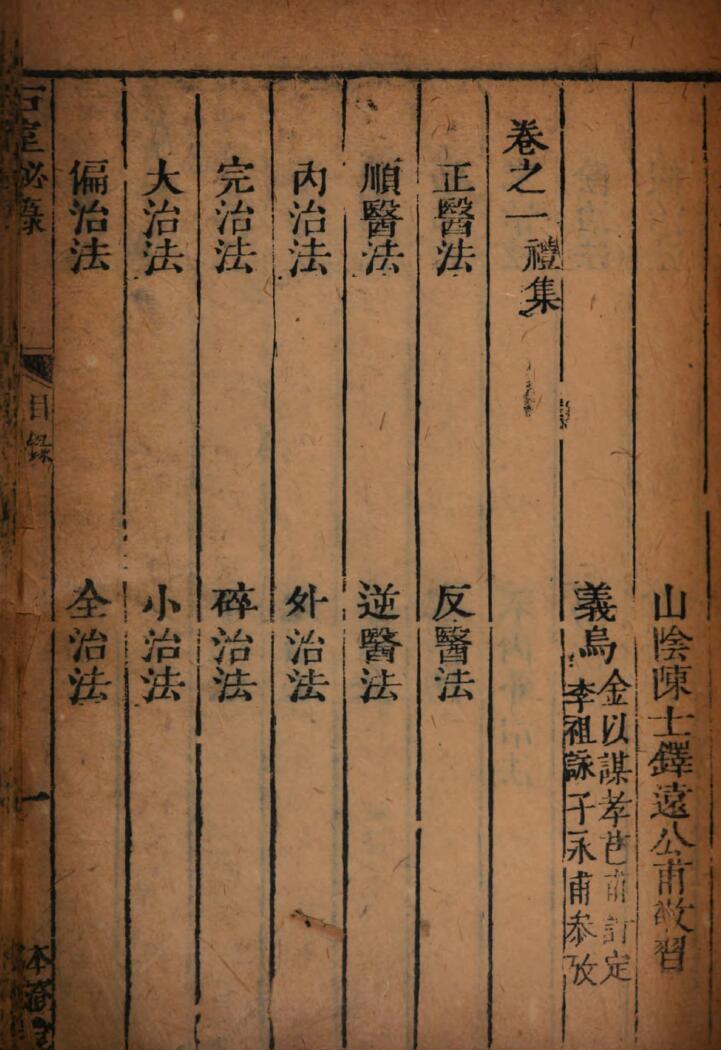 山陰陳士鐸遠公甫敬習
義烏
金以謀孝芑甫訂定
李祖詠子永甫叅攷
卷之一 禮集
正醫法 反醫法
順醫法 逆醫法
內治法 外治法
完治法 碎治法
大治法 小治法
偏治法 全治法
石室秘錄 目錄 一 本澄